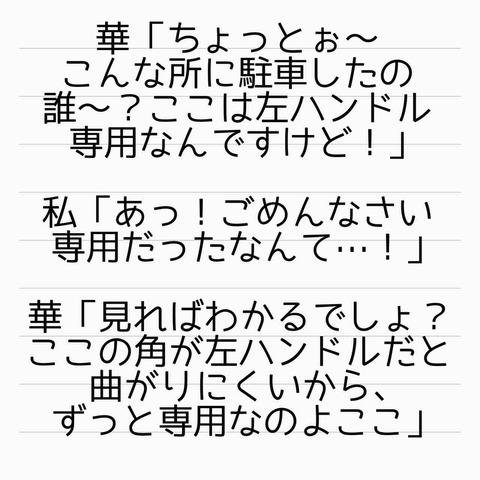 華「ちょっとぉ〜
こんな所に駐車したの
誰〜？ここは左ハンドル
専用なんですけど！」
私「あっ！ごめんなさい
専用だったなんて…！」
華「見ればわかるでしょ？
ここの角が左ハンドルだと
曲がりにくいから、
ずっと専用なのよここ」